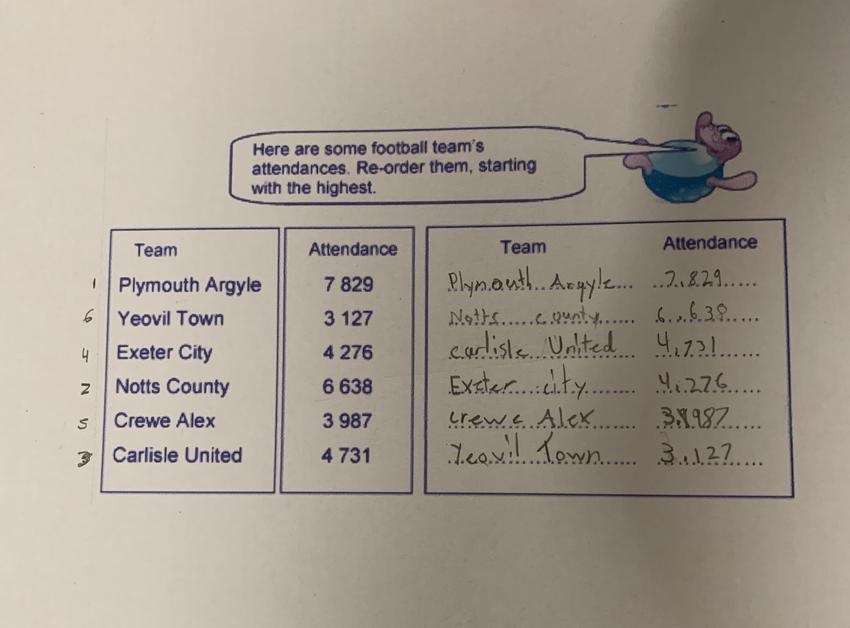 Here are some football team's
attendances. Re-order them, starting
with the highest.
Team Attendance Team Attendance
1 Plymouth Argyle 7 829 Plymouth Argyle 7,829
6 Yeovil Town 3 127 Notts county 6,638
4 Exeter City 4 276 carlisle United 4,731
2 Notts County 6 638 Exeter city 4,276
5 Crewe Alex 3 987 crewe Alex 3,987
3 Carlisle United 4 731 Yeovil Town 3,127